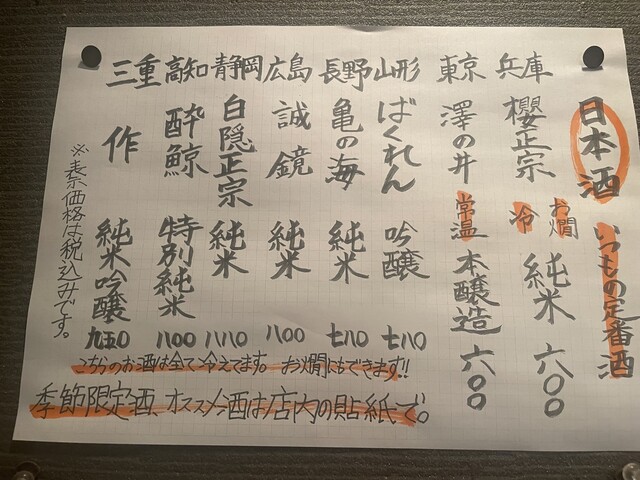 日本酒 いつもの定番酒
兵庫 櫻正宗 お燗 冷 純米 六〇〇
東京 澤の井 常温 本醸造 六〇〇
山形 ばくれん 吟醸 七八〇
長野 亀の海 純米 七八〇
広島 誠鏡 純米 八〇〇
静岡 白隠正宗 純米
高知 酔鯨 特別純米 八〇〇
三重 作 純米吟醸 九五〇
※表示価格は税込みです。
こちらのお酒は全て冷えてます。 お燗にもできます!!
季節限定酒 オススメ酒は店内の貼紙で。